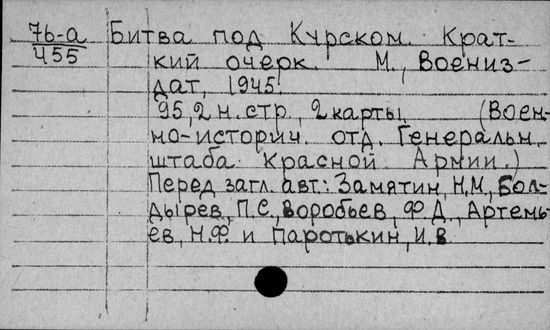 76-а Битва под Курском. Крат-
455 кий очерк. М., Воениз-
дат, 1945.
95,2 н.стр., 2 карты. (Воен-
но-историч. отд. Генеральн.
штаба Красной Армии.)
Перед загл. авт.: Замятин, Н.М., Бол-
дырев, П.С., Воробьев, Ф.Д., Артемь-
ев, Н.Ф. и Паротькин, И.В.